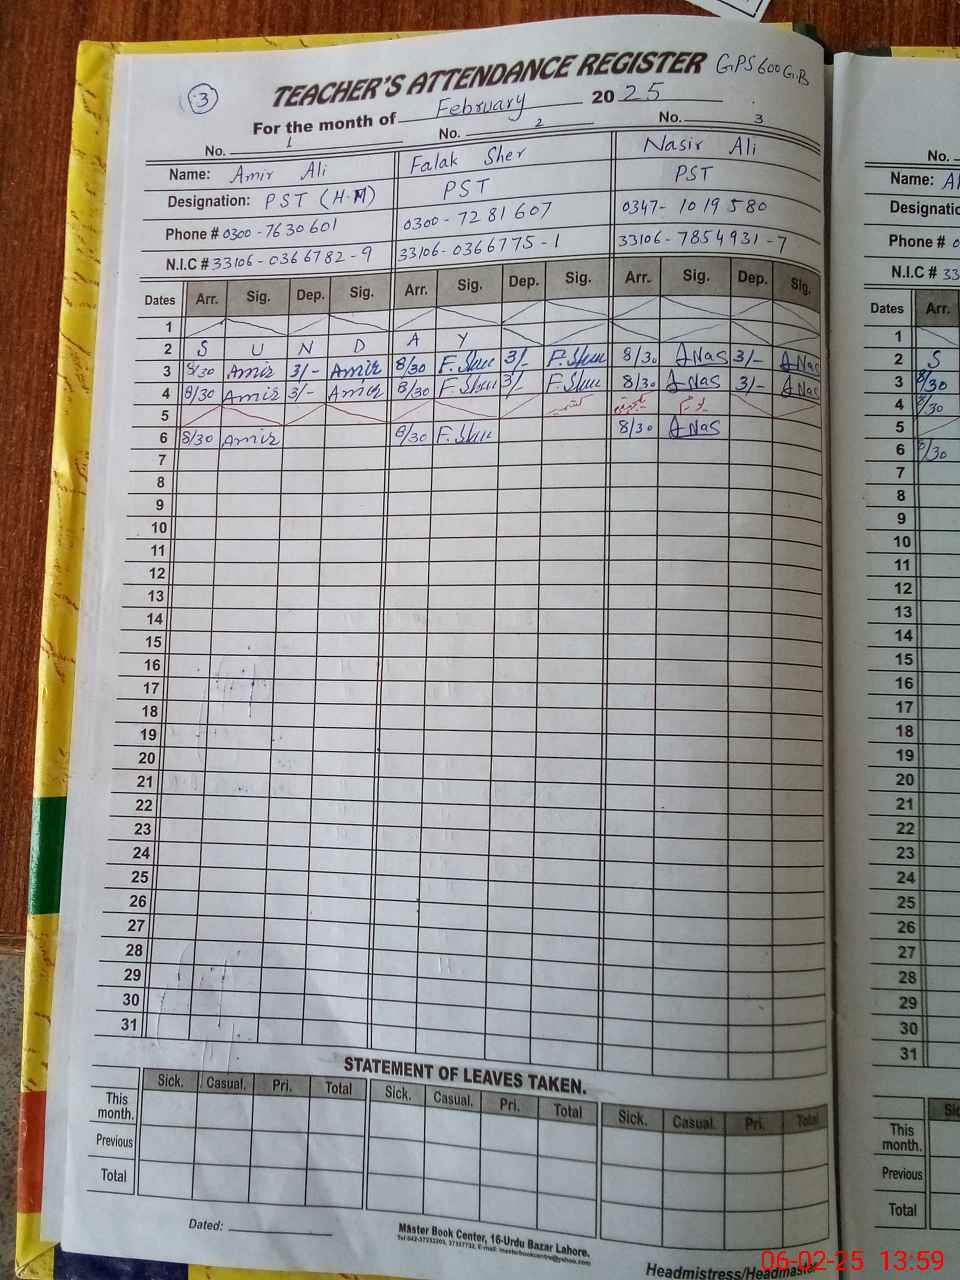 3
TEACHER'S ATTENDANCE REGISTER GPS 600 G.B
For the month of February 2025
No. 1 No. 2 No. 3
Name: Amir Ali Falak Sher Nasir Ali
Designation: PST (H.M) PST PST
Phone # 0300-7630601 0300-7281607 0347-1019580
N.I.C # 33106-0366782-9 33106-0366775-1 33106-7854931-7
Dates Arr. Sig. Dep. Sig. Arr. Sig. Dep. Sig. Arr. Sig. Dep. Sig.
1
2 S U N D A Y
3 8/30 Amir 3/- Amir 8/30 F.Sher 3/- F.Sher 8/30 ANas 3/- ANas
4 8/30 Amir 3/- Amir 8/30 F.Sher 3/- F.Sher 8/30 ANas 3/- ANas
5 کشمیر
6 8/30 Amir 8/30 F.Sher 8/30 ANas
7
8
9
10
11
12
13
14
15
16
17
18
19
20
21
22
23
24
25
26
27
28
29
30
31
STATEMENT OF LEAVES TAKEN.
Sick. Casual. Pri. Total Sick. Casual. Pri. Total Sick. Casual. Pri. Total
This month.
Previous
Total
Dated:
Master Book Center, 16-Urdu Bazar Lahore.
Headmistress/Headmaster
No.
Name: Al
Designatio
Phone # 0
N.I.C # 33
Dates Arr.
1
2 S
3 8/30
4 8/30
5
6 8/30
7
8
9
10
11
12
13
14
15
16
17
18
19
20
21
22
23
24
25
26
27
28
29
30
31
Sic
This month.
Previous
Total
06-02-25 13:59